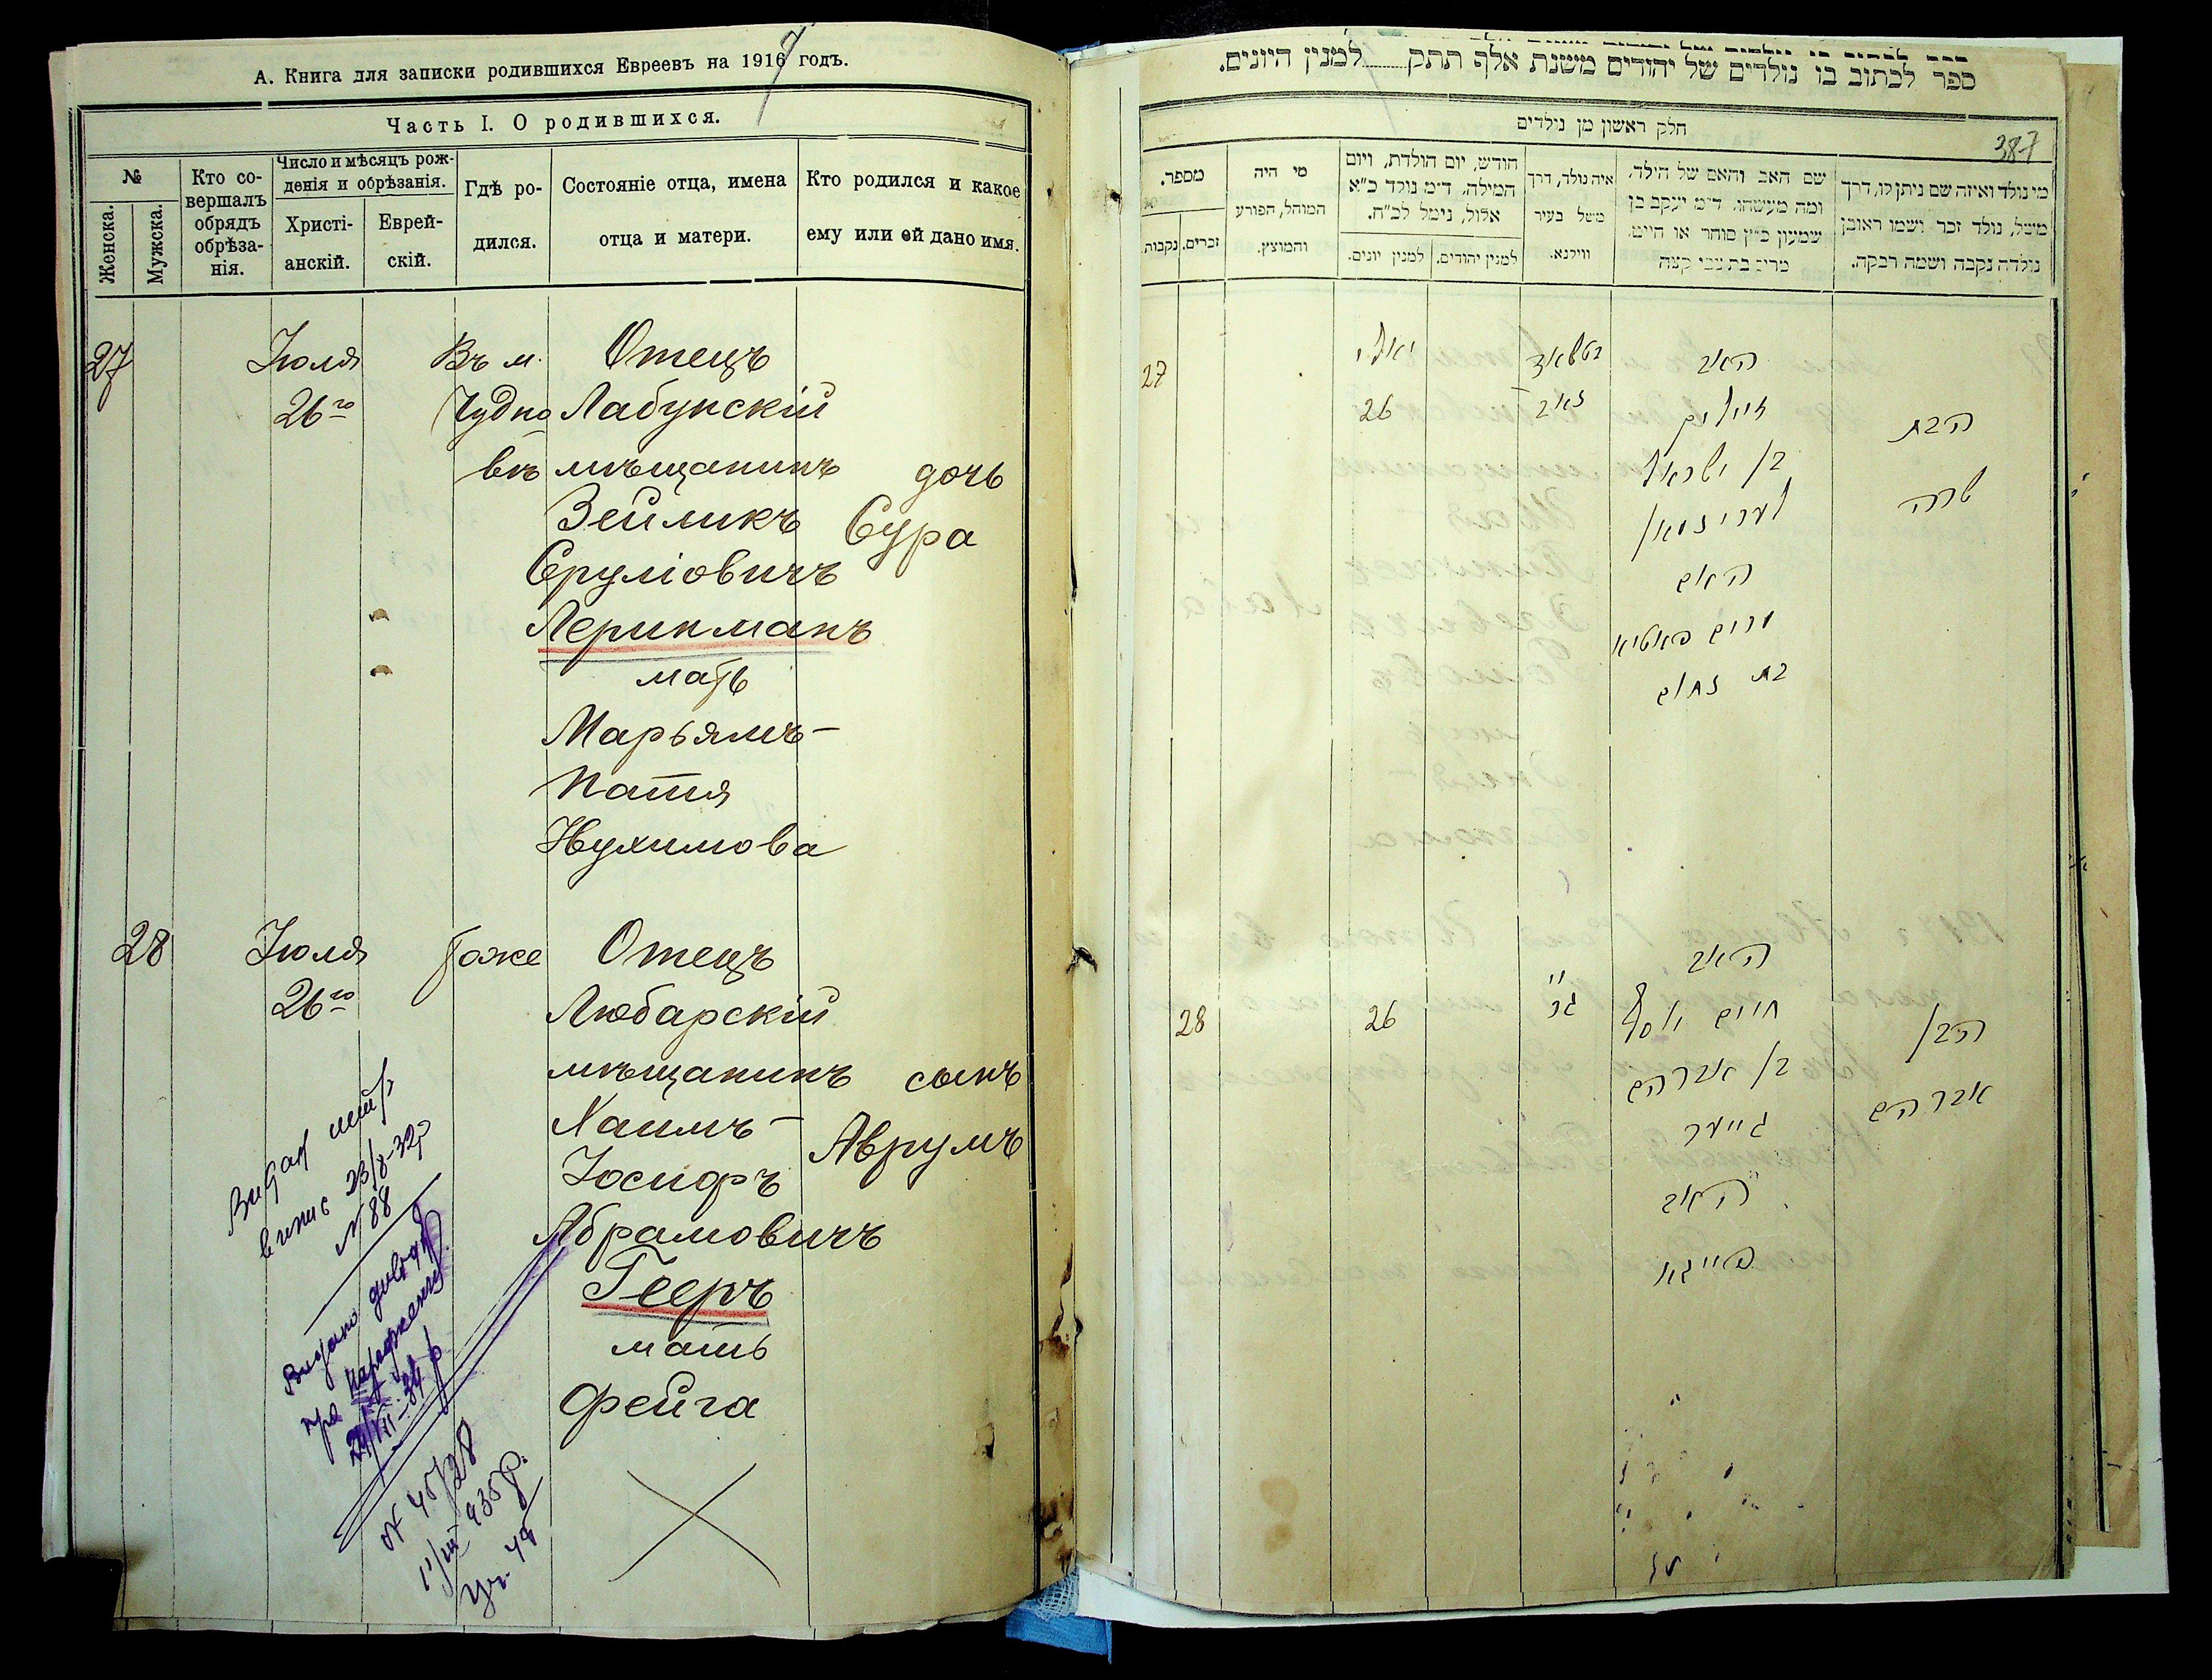 А. Книга для записки родившихся Евреевъ на 1917 годъ.
Часть I. О родившихся.
№
Женска.
Мужска.
Кто со-
вершалъ
обрядъ
обрѣза-
нія.
Число и мѣсяцъ рож-
денія и обрѣзанія.
Христі-
анскій.
Еврей-
скій.
Гдѣ ро-
дился.
Состояніе отца, имена
отца и матери.
Кто родился и какое
ему или ей дано имя.
27
Іюля
26го
Въ м.
Чудно
вѣ
Отецъ
Лабунскій
мѣщанинъ
Зейликъ
Сруліовичъ
Леринманъ
мать
Марьямъ-
Патя
Нухимова
дочь
Сура
28
Іюля
26го
тоже
Отецъ
Любарскій
мѣщанинъ
Хаимъ-
Іосифъ
Абрамовичъ
Гееръ
мать
Фейга
сынъ
Аврумъ
Видан
23/8-32р
N 88
Видано
про народження
24/VII-34 р
N 45/28
935р.
ספר לכתוב בו נולדים של יהודים משנת אלף תתק למנין היונים.
חלק ראשון מן נולדים
387
מספר.
זכרים.
נקבות
מי היה
המוהל, הפורע
והמוצץ.
חודש, יום הולדת, ויום
המילה, ד״מ נולד כ״א
אלול, נימל לכ״ח.
למנין יהודים.
למנין יונים.
איה נולד, דרך
משל בעיר
ווילנא.
שם האב והאם של הילד,
ומה מעשהו, ד״מ יעקב בן
שמעון כ״ץ סוחר או חייט,
מרים בת צבי קצה
מי נולד ואיזה שם ניתן לו, דרך
משל, נולד זכר ושמו ראובן
נולדה נקבה ושמה רבקה.
27
יאלי
26
האב
זיילין
בן ישראל
לערינמאן
האם
מרים פאטיא
בת נחום
הבת
שרה
28
26
האב
חיים יוסף
בן אברהם
גייער
האב
פייגא
הבן
אברהם